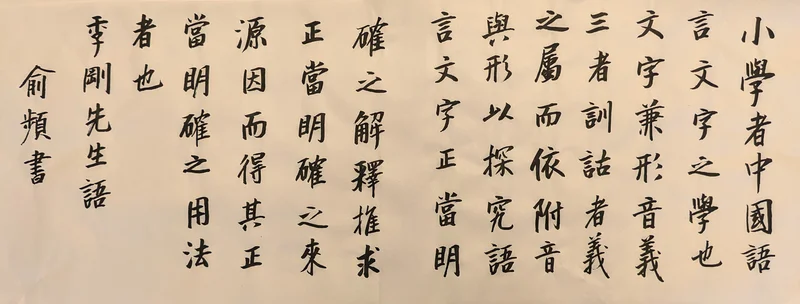 小學者中國語
言文字之學也
文字兼形音義
三者訓詁者義
之屬而依附音
與形以探究語
言文字正當明
確之解釋推求
正當明確之來
源因而得其正
當明確之用法
者也
季剛先生語
俞頻書